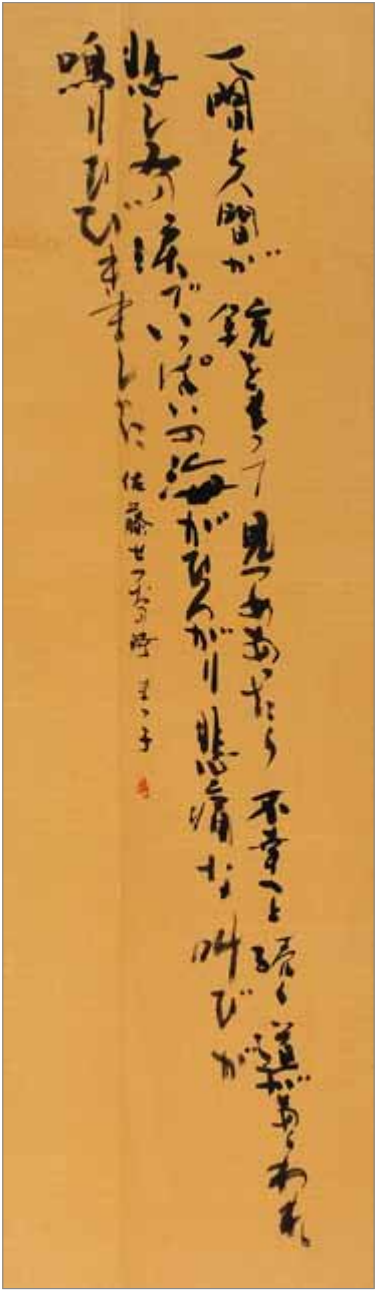 人間と人間が 銃をもって 見つめあったら 不幸へと続く道があらわれ
悲しみの涙でいっぱいの海がひろがり 悲痛な叫びが
鳴りひびきました 佐藤せつおの詩